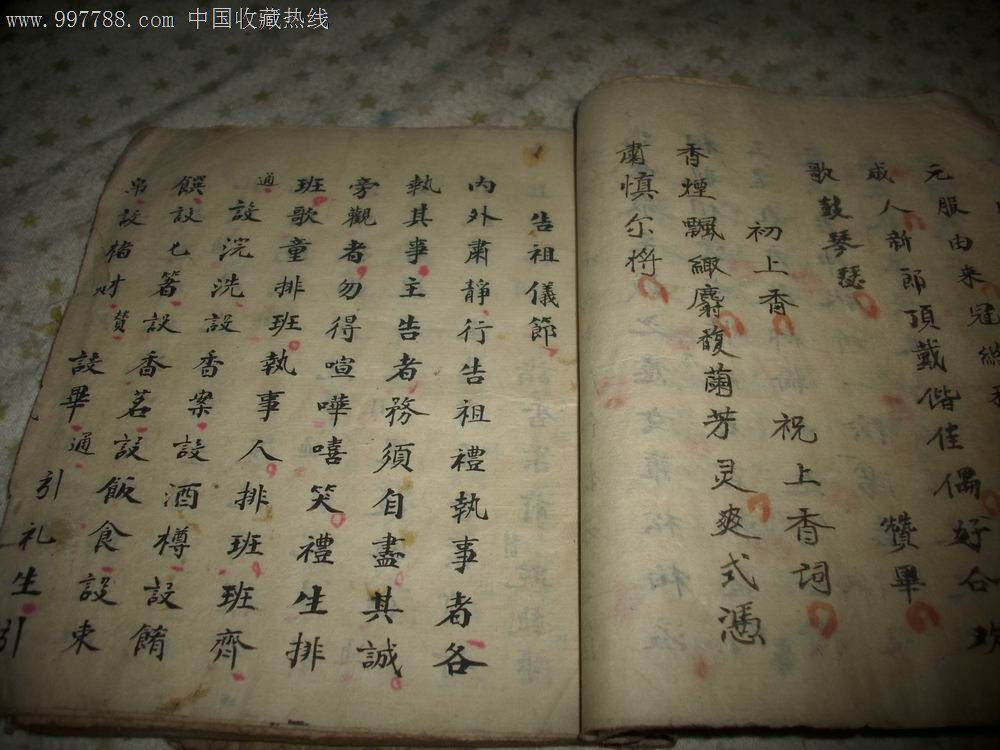 www.997788.com 中国收藏热线
元服由来冠
成人新郎頂戴偕佳偶好合
歌鼓琴瑟 贊畢
初上香 祝上香詞
香煙飄緲麝馥蘭芳灵爽式憑
肅慎尔將
告祖儀節
內外肅靜行告祖禮執事者各
執其事主告者務須自盡其誠
旁觀者勿得喧嘩嘻笑禮生排
班歌童排班執事人排班班齊
通 設浣洗設香案設酒樽設餚
饌設匕箸設香茗設飯食設東
帛設楮财 設畢通
引礼生引